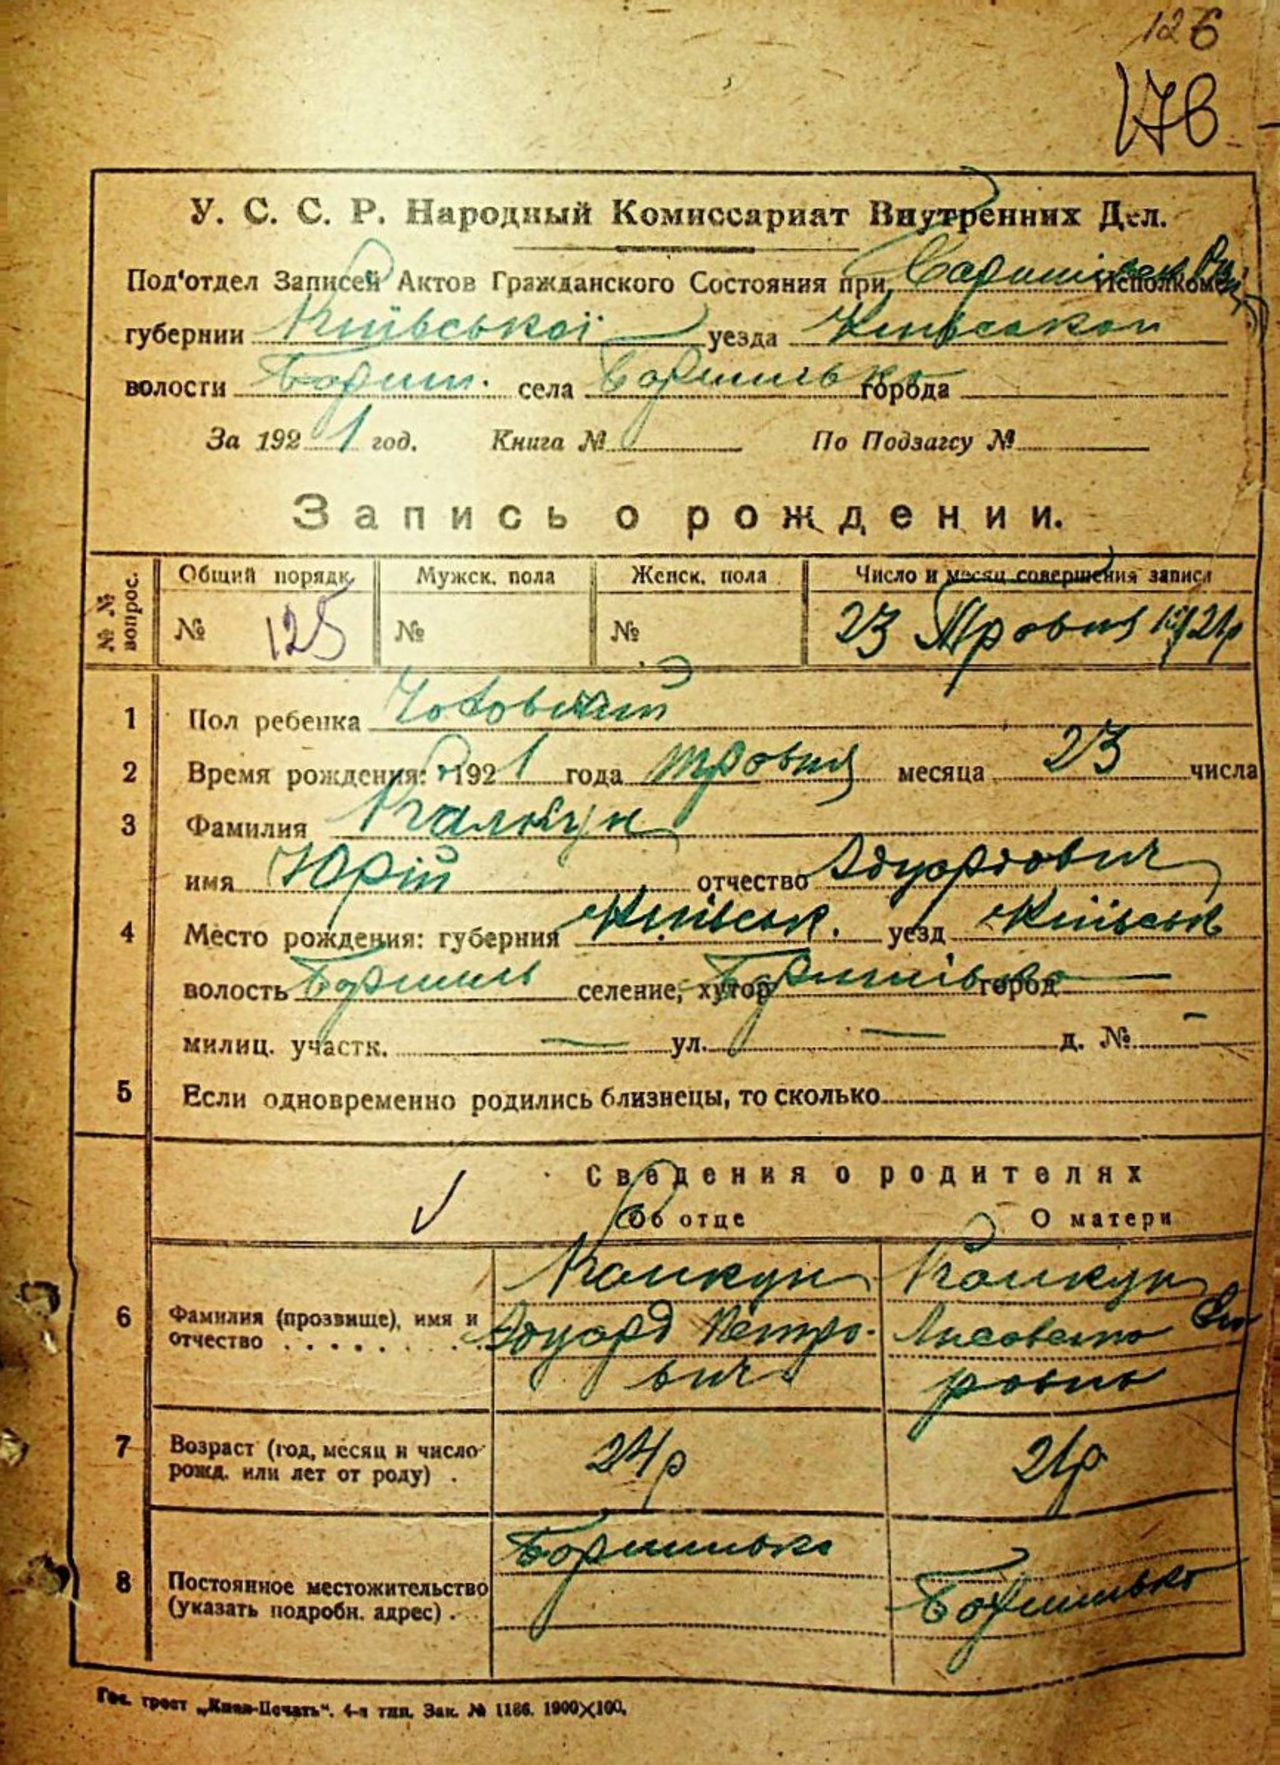 126
176
У. С. С. Р. Народный Комиссариат Внутренних Дел.
Под'отдел Записей Актов Гражданского Состояния при Исполкоме
губернии Київської уезда Київської
волости Бориш. села города
За 1921 год. Книга № По Подзагсу №
Запись о рождении.
№ № вопрос. Общий порядк. Мужск. пола Женск. пола Число и месяц совершения записи
№ 125 № № 23 Травня 1921р
1 Пол ребенка Чоловічий
2 Время рождения: 1921 года травня месяца 23 числа
3 Фамилия
имя Юрій отчество Едуардович
4 Место рождения: губерния Київськ. уезд Київськ
волость селение, хутор город
милиц. участк. — ул. — д. № —
5 Если одновременно родились близнецы, то сколько
Сведения о родителях
Об отце О матери
6 Фамилия (прозвище), имя и отчество Едуард Петрович
7 Возраст (год, месяц и число рожд. или лет от роду) . 24р 21р
8 Постоянное местожительство (указать подробн. адрес) .
Гос. трест „Киев-Печать". 4-я тип. Зак. № 1186. 1900×100.